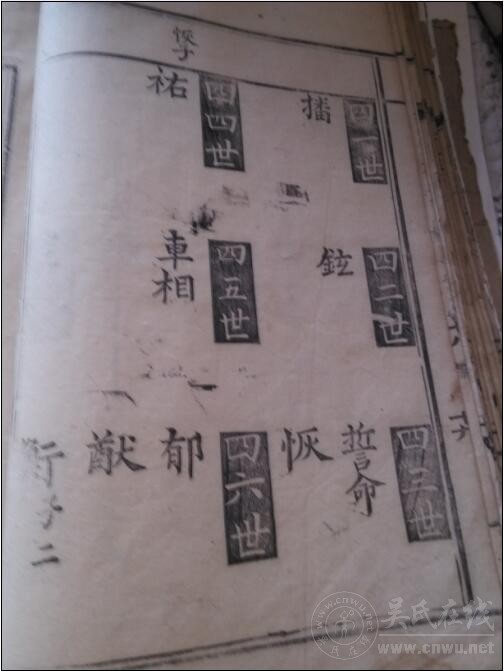 四一世
播
四二世
鉉
四三世
誓命
恢
恢子
四四世
祐
四五世
車相
四六世
郁
猷
行子二
吴氏在线
www.cnwu.net